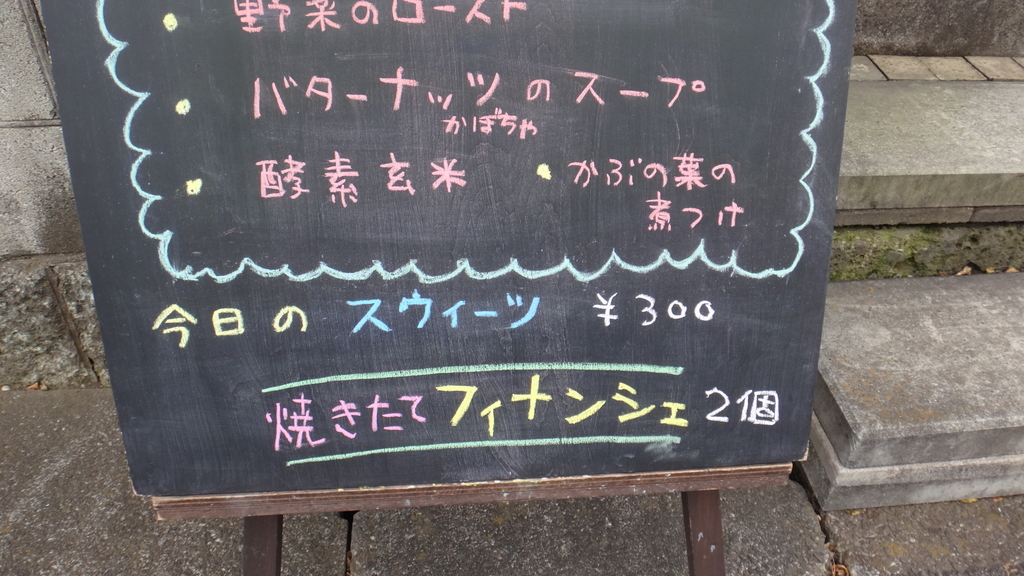 野菜のロースト
バターナッツのスープ
かぼちゃ
酵素玄米 ・かぶの葉の
煮つけ
今日の スウィーツ ¥300
焼きたて フィナンシェ 2個